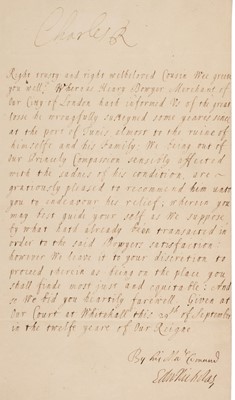 Charles R
Right trusty and right welbeloved Cousin We greete
you well. Whereas Henry Bowyer Merchant of
Our City of London hath informed Us of the great
losse he wrongfully susteyned some yeares since
at the port of Tunis almost to the ruine of
himselfe and his Family. We being out of
Our Princely Compassion sensibly affected
with the sadnes of his condition, are
graciously pleased to recommend him unto
you to endeavour his relief, wherein you
may best guide your self, as We suppose,
by what hath already been transacted in
order to the said Bowyers satisfaction:
however We leave it to your discretion to
proceed therein as being on the place you
shall finde most just and equitable: And
so We bid you heartily farewell. Given at
Our Court at Whitehall this 20th of September
in the twelfe yeares of Our Reigne
By his Maty Comand
Edw: Nicholas